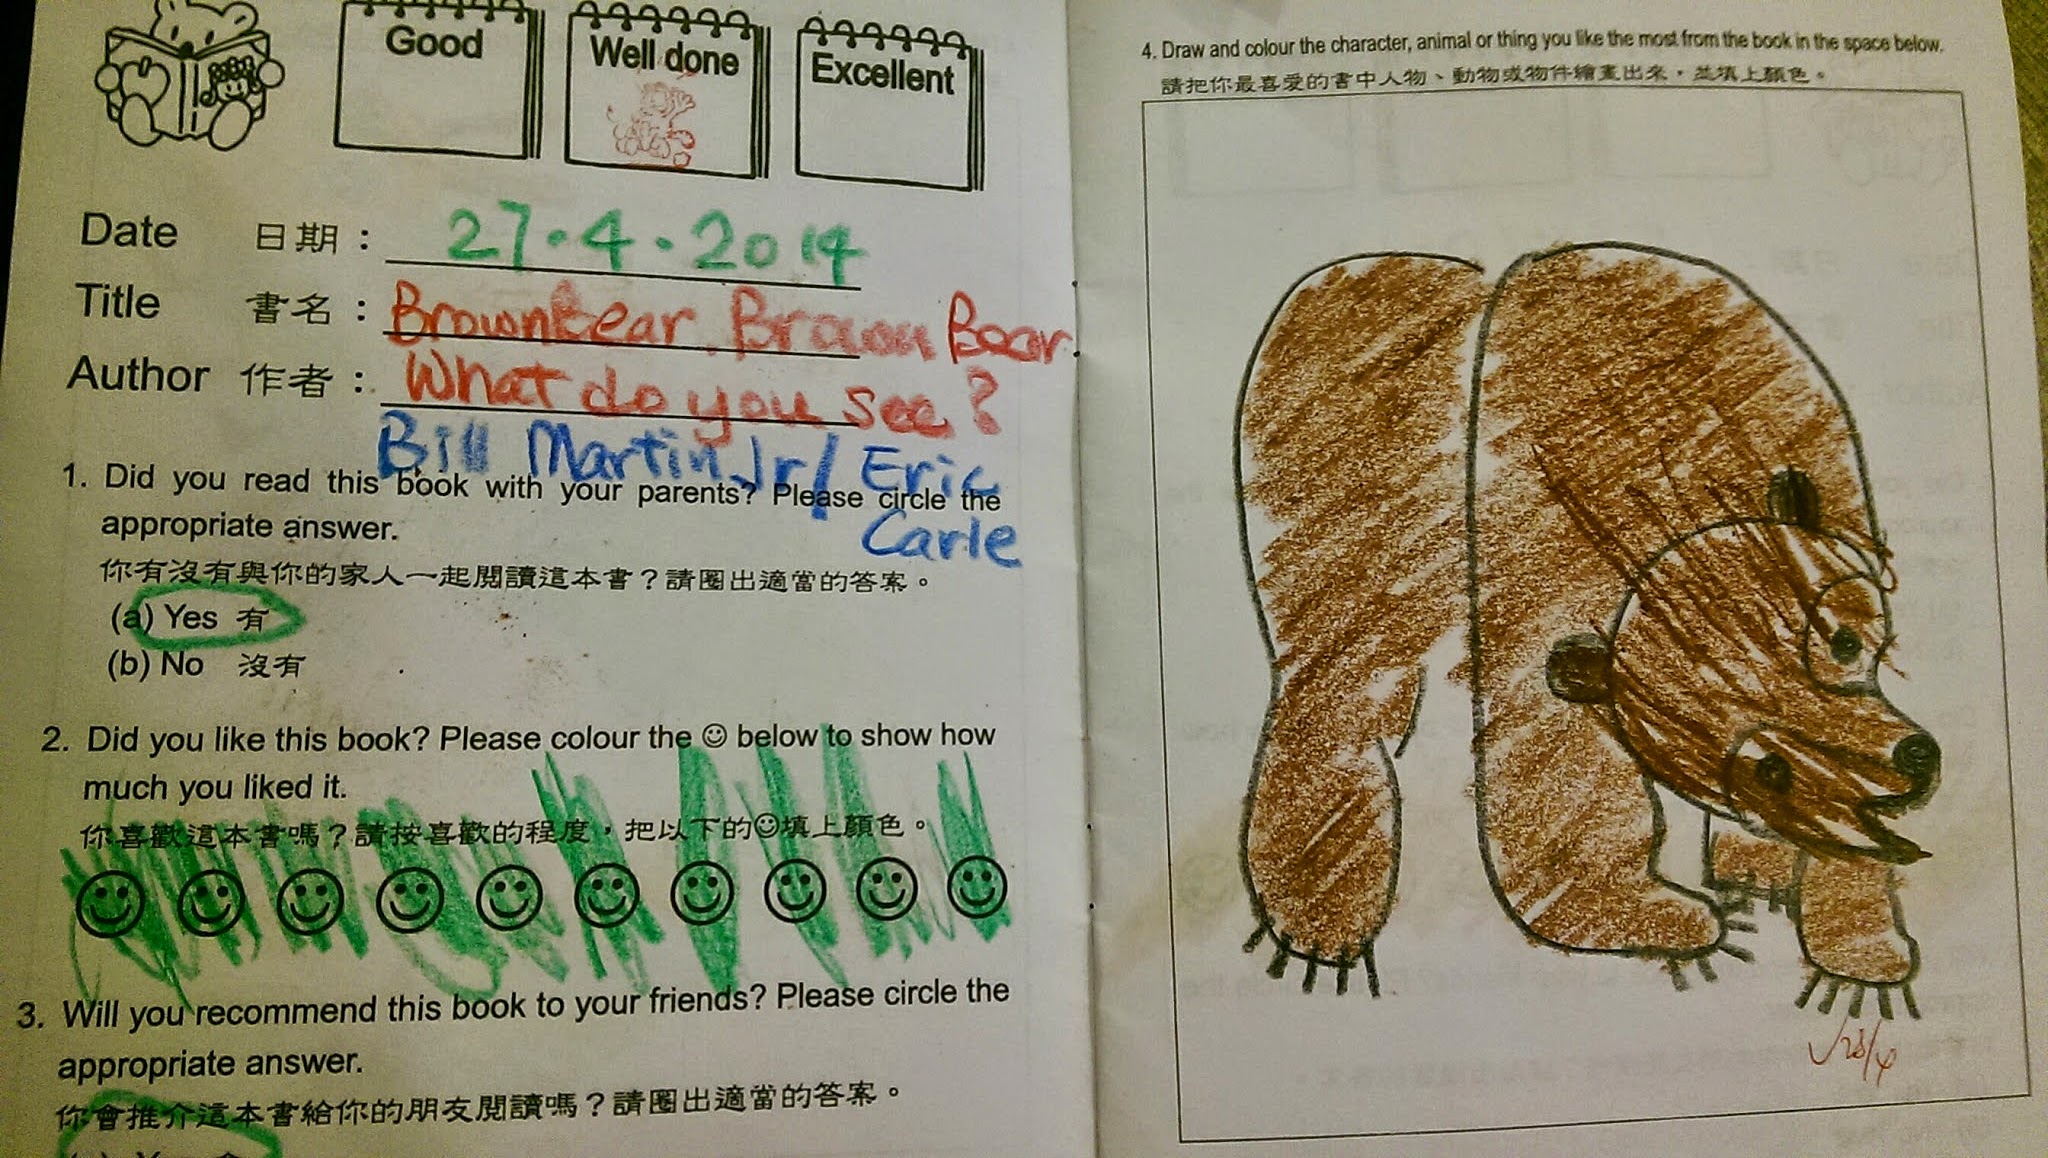 Good
Well done
Excellent
Date 日期： 27.4.2014
Title 書名： Brown Bear, Brown Bear
Author 作者： What do you see?
Bill Martin Jr / Eric
Carle
1. Did you read this book with your parents? Please circle the
appropriate answer.
你有沒有與你的家人一起閱讀這本書？請圈出適當的答案。
(a) Yes 有
(b) No 沒有
2. Did you like this book? Please colour the ☺ below to show how
much you liked it.
你喜歡這本書嗎？請按喜歡的程度，把以下的☺填上顏色。
3. Will you recommend this book to your friends? Please circle the
appropriate answer.
你會推介這本書給你的朋友閱讀嗎？請圈出適當的答案。
4. Draw and colour the character, animal or thing you like the most from the book in the space below.
請把你最喜愛的書中人物、動物或物件繪畫出來，並填上顏色。
28/4